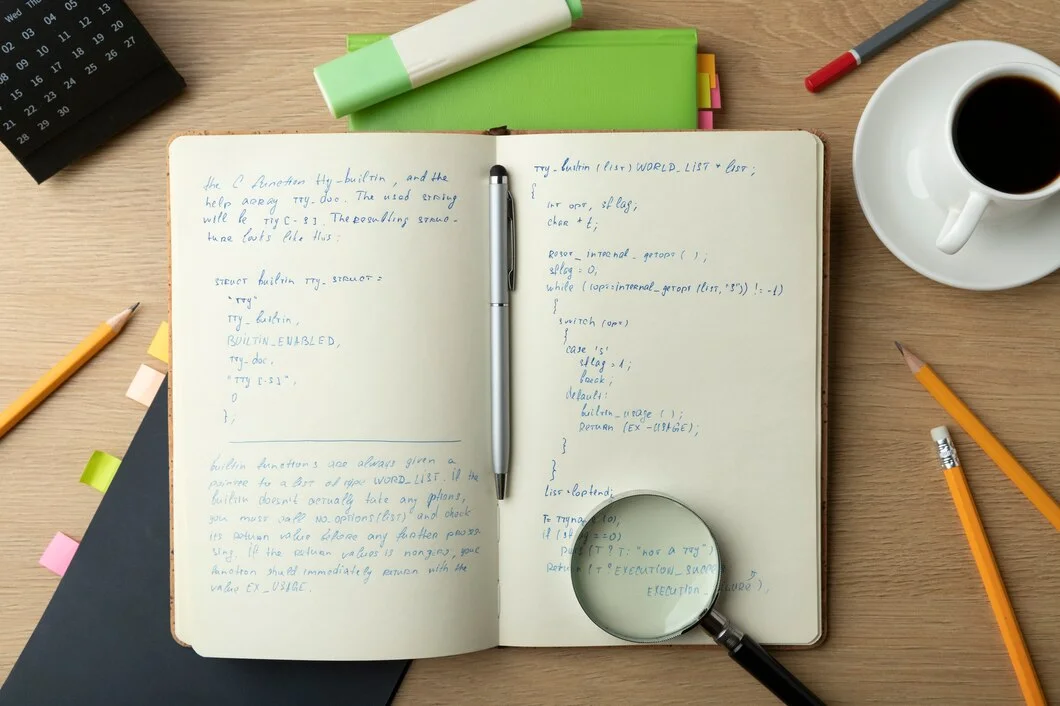 Wed Thu
02 03 04 05
08 09 10 11 12 13
15 16 17 18 19 20
21 22 23 24 25 26 27
28 29 30
the C function tty_builtin, and the
help array tty_doc. The used string
will be tty [-s]. The resulting struc-
ture looks like this:
struct builtin tty_struct =
"tty"
tty_builtin,
BUILTIN_ENABLED,
tty_doc,
"tty [-s]",
0
};
builtin functions are always given a
pointer to a list of type WORD_LIST. if the
builtin doesn't actually take any options,
you must call no_options(list) and check
its return value before any further proces
sing. If the return values is nonzero, your
function should immediately return with the
value EX_USAGE.
tty_builtin (list) WORD_LIST * list;
{
int opt, sflag;
char * t;
Reset_internal_getopt ( );
sflag = 0;
while ((opt=internal_getopt (list, "s")) != -1)
{
switch (opt)
{
case 's'
sflag = 1;
break;
default:
builtin_usage ( );
return (EX-USAGE);
}
}
list = loptend;
(0);
if ( ==0)
(T ? T: "not a tty")
Return (T ? EXECUTION_
EXECUTION_